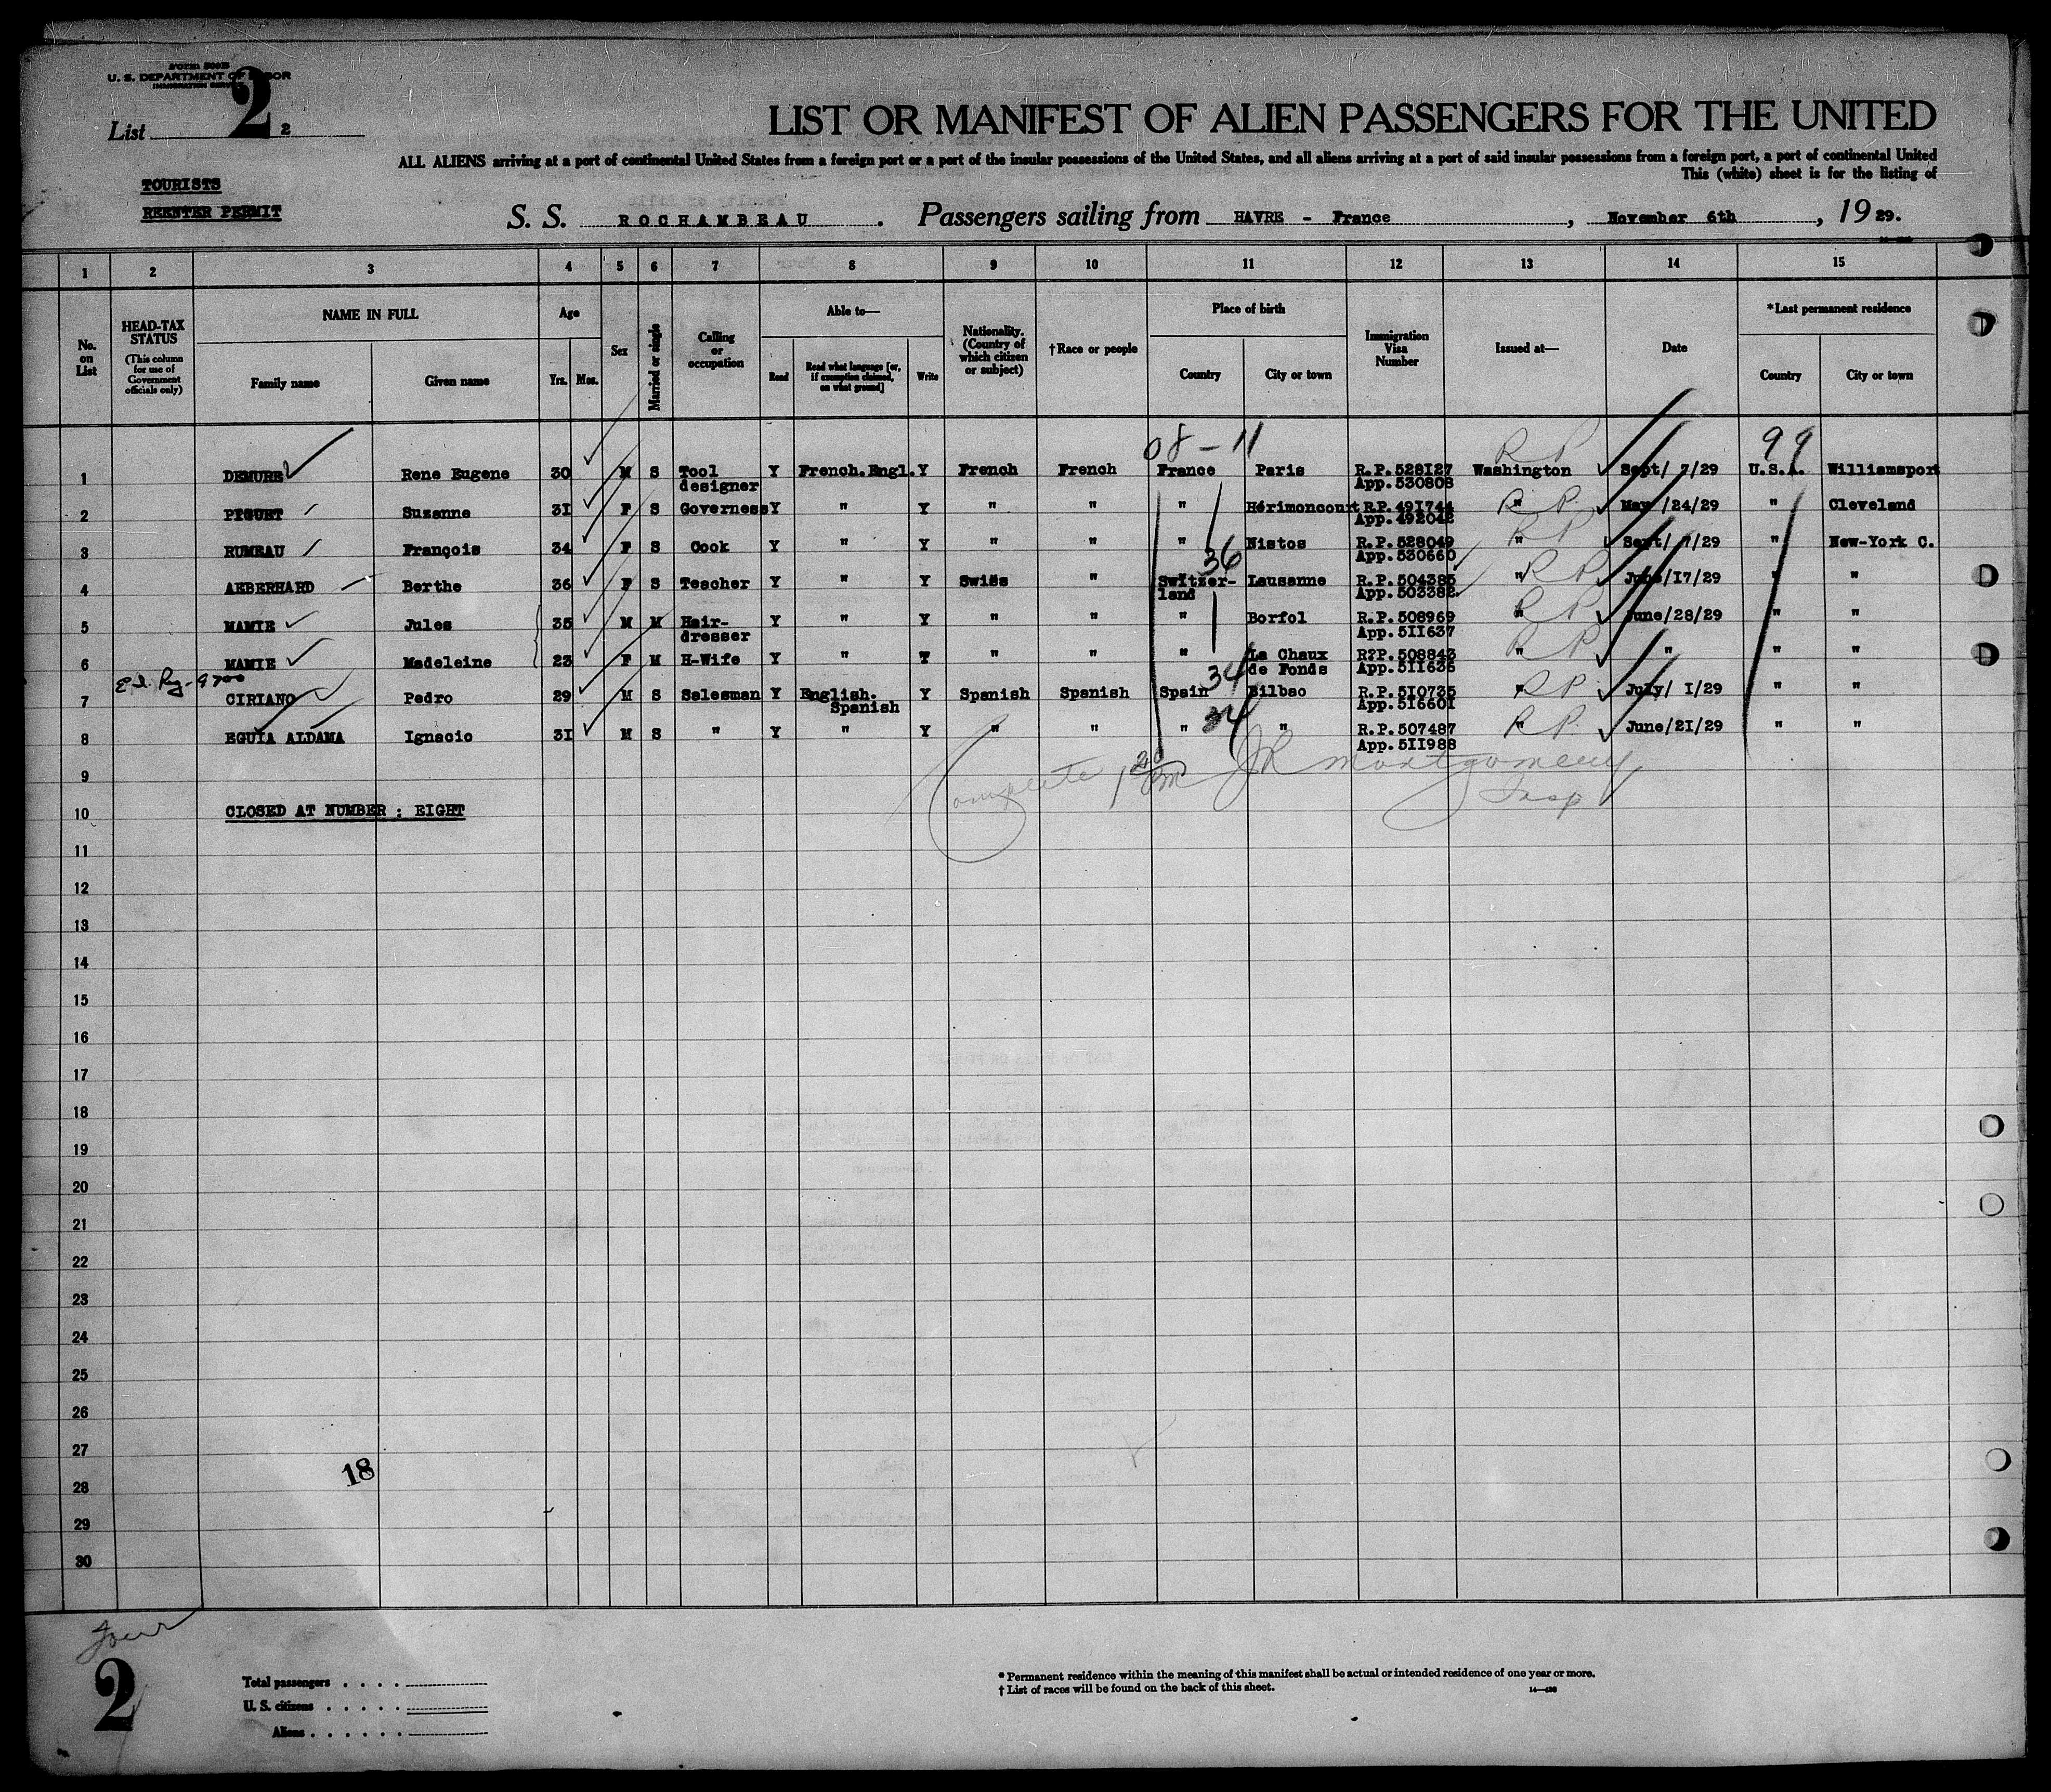 U. S. DEPARTMENT OF LABOR
IMMIGRATION SERVICE
List 2 2
LIST OR MANIFEST OF ALIEN PASSENGERS FOR THE UNITED
ALL ALIENS arriving at a port of continental United States from a foreign port or a port of the insular possessions of the United States, and all aliens arriving at a port of said insular possessions from a foreign port, a port of continental United
This (white) sheet is for the listing of
TOURISTS
REENTER PERMIT
S. S. ROCHAMBEAU. Passengers sailing from HAVRE - France, November 6th, 19 29.
1 2 3 4 5 6 7 8 9 10 11 12 13 14 15
No. on List
HEAD-TAX STATUS (This column for use of Government officials only)
NAME IN FULL
Family name Given name
Age
Yrs. Mos.
Sex
Married or single
Calling or occupation
Able to—
Read Read what language [or, if exemption claimed, on what ground] Write
Nationality. (Country of which citizen or subject)
†Race or people
Place of birth
Country City or town
Immigration Visa Number
Issued at—
Date
*Last permanent residence
Country City or town
08-11 RP 99
1 DEMURE Rene Eugene 30 M S Tool designer Y French.Engl. Y French French France Paris R.P.528127 App.530808 Washington Sept/ 7/29 U.S.A. Williamsport
2 PIGUET Suzanne 31 F S Governess Y " Y " " " Hérimoncourt R.P.491744 App.492042 " RP May /24/29 " Cleveland
3 RUMEAU François 34 F S Cook Y " Y " " " Nistos R.P.528049 App.530660 " RP Sept/ 7/29 " New-York C.
36
4 AEBERHARD Berthe 36 F S Teacher Y " Y Swiss " Switzer-land Lausanne R.P.504385 App.503382 " RP June/17/29 " "
5 MAMIE Jules 35 M M Hair-dresser Y " Y " " " Borfol R.P.508969 App.511637 " RP June/28/29 " "
6 MAMIE Madeleine 23 F M H-Wife Y " Y " " " La Chaux de Fonds R?P.508843 App.511636 " RP " " "
34
7 CIRIANO Pedro 29 M S Salesman Y English. Spanish Y Spanish Spanish Spain Bilbao R.P.510735 App.516601 " RP July/ 1/29 " "
34
8 EGUIA ALDAMA Ignacio 31 M S " Y " Y " " " " R.P.507487 App.511988 RP June/21/29 " "
Complete 1 20 PM JR Montgomery
Insp
9
10 CLOSED AT NUMBER : EIGHT
11
12
13
14
15
16
17
18
19
20
21
22
23
24
25
26
27
18
28
29
30
2
Total passengers
U. S. citizens
Aliens
* Permanent residence within the meaning of this manifest shall be actual or intended residence of one year or more.
† List of races will be found on the back of this sheet.